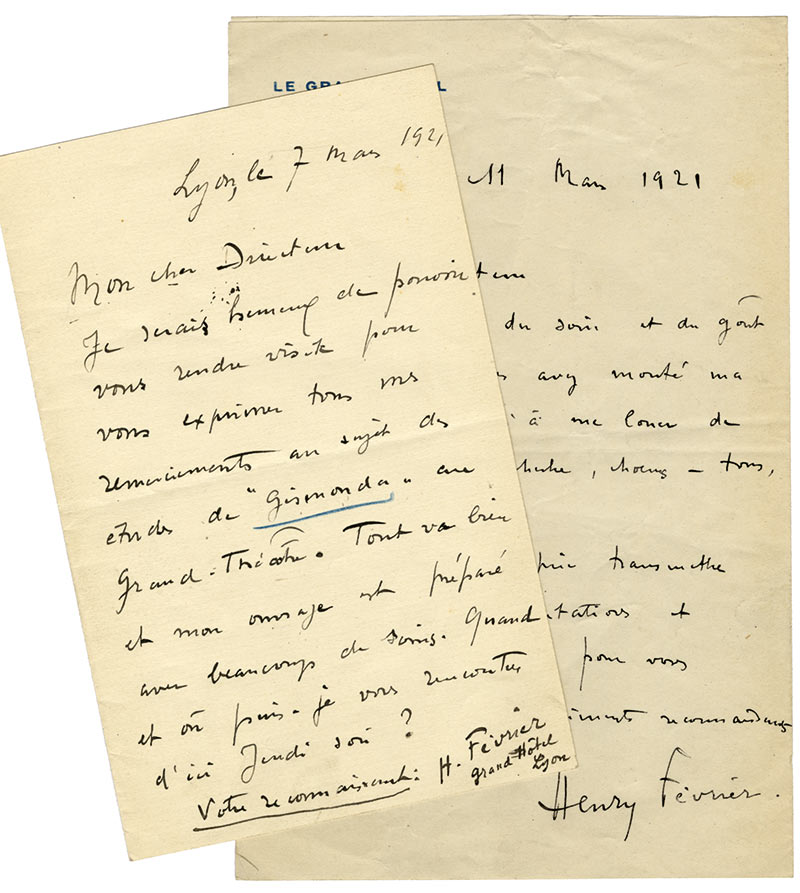 Lyon, le 7 Mars 1921
Mon cher Directeur
Je serais heureux de pouvoir
vous rendre visite pour
vous exprimer tous mes
remerciements au sujet des
études de "Gismonda" au
Grand-Théâtre. Tout va bien
et mon ouvrage est préparé
avec beaucoup de soins. Quand
et où puis-je vous rencontrer
d'ici Jeudi soir ?
Votre reconnaissant: H. Février
Grand Hôtel
Lyon
LE GRA
L
11 Mars 1921
du soin et du goût
avez monté ma
à me louer de
, choeurs - tous,
transmettre
pour vous
Henry Février.